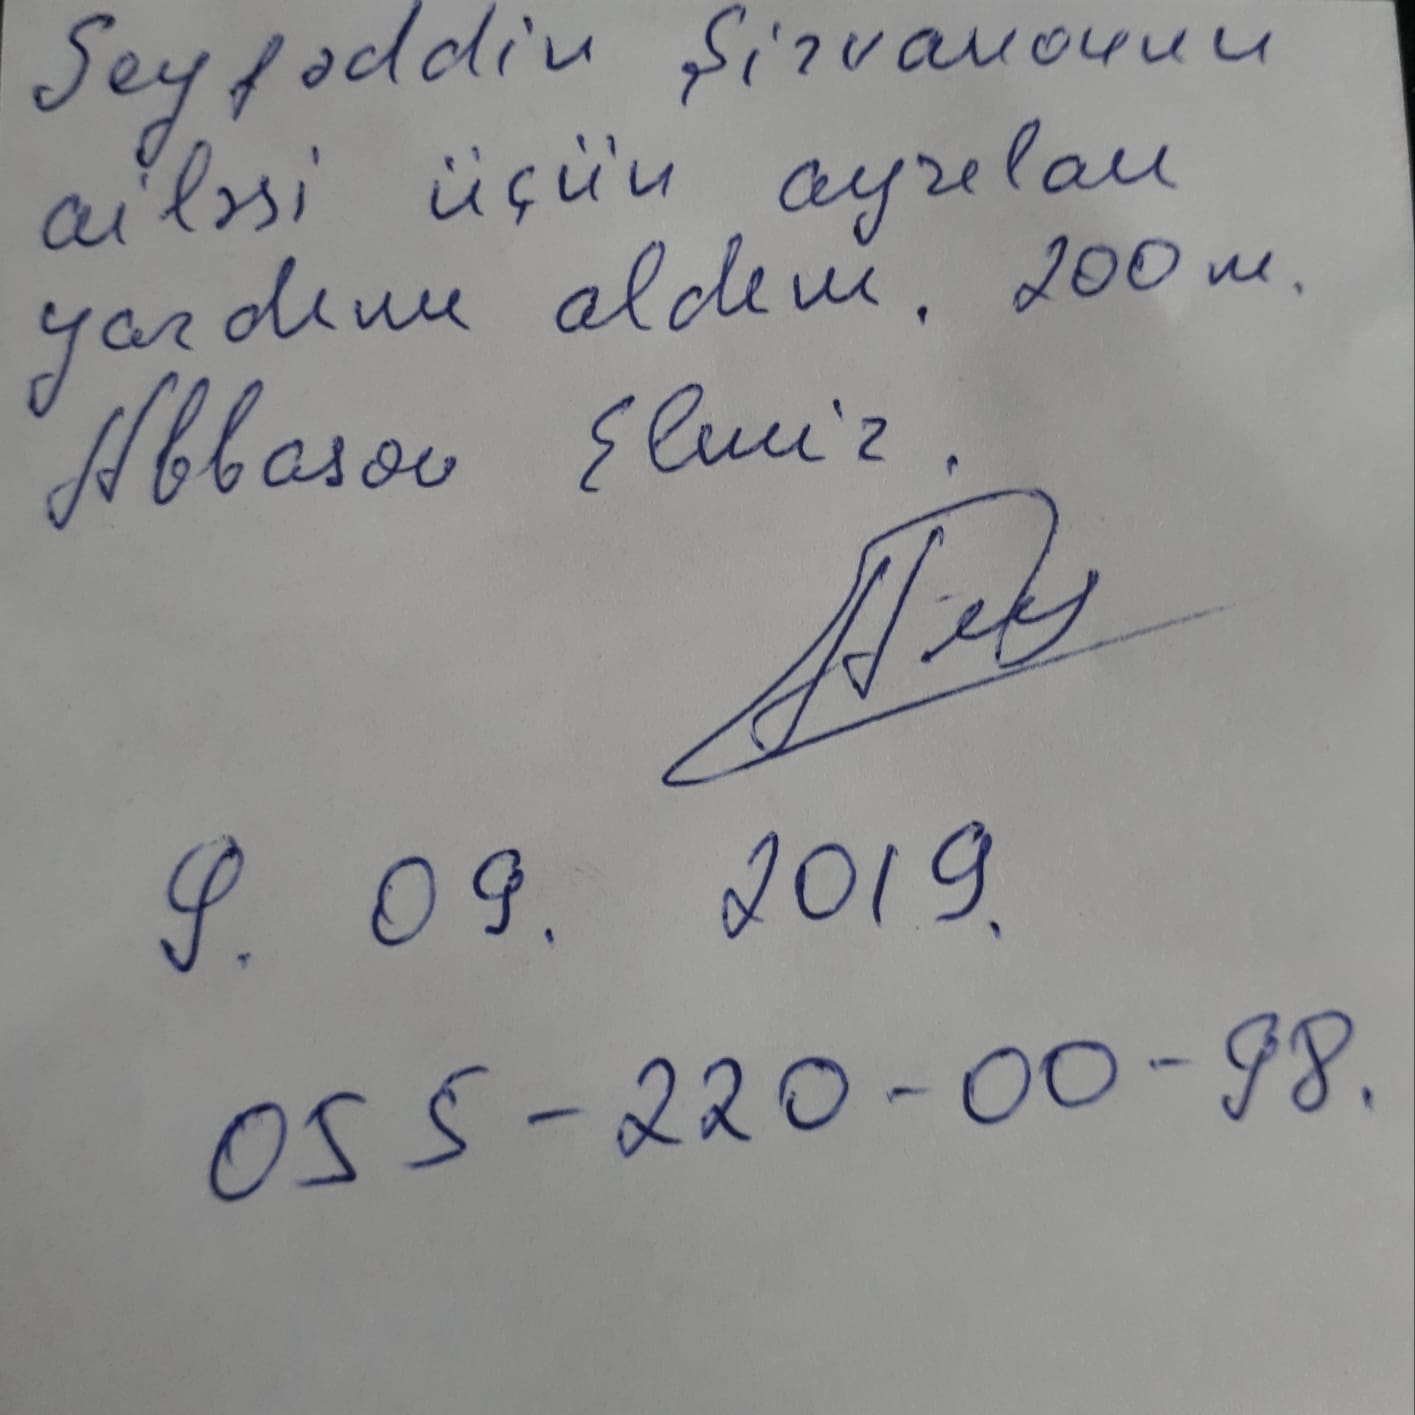 Seyfəddin Şirvanovun
ailəsi üçün ayrelan
yardemı aldem. 200 m.
Abbasov Elmir.
9. 09. 2019.
055-220-00-98.